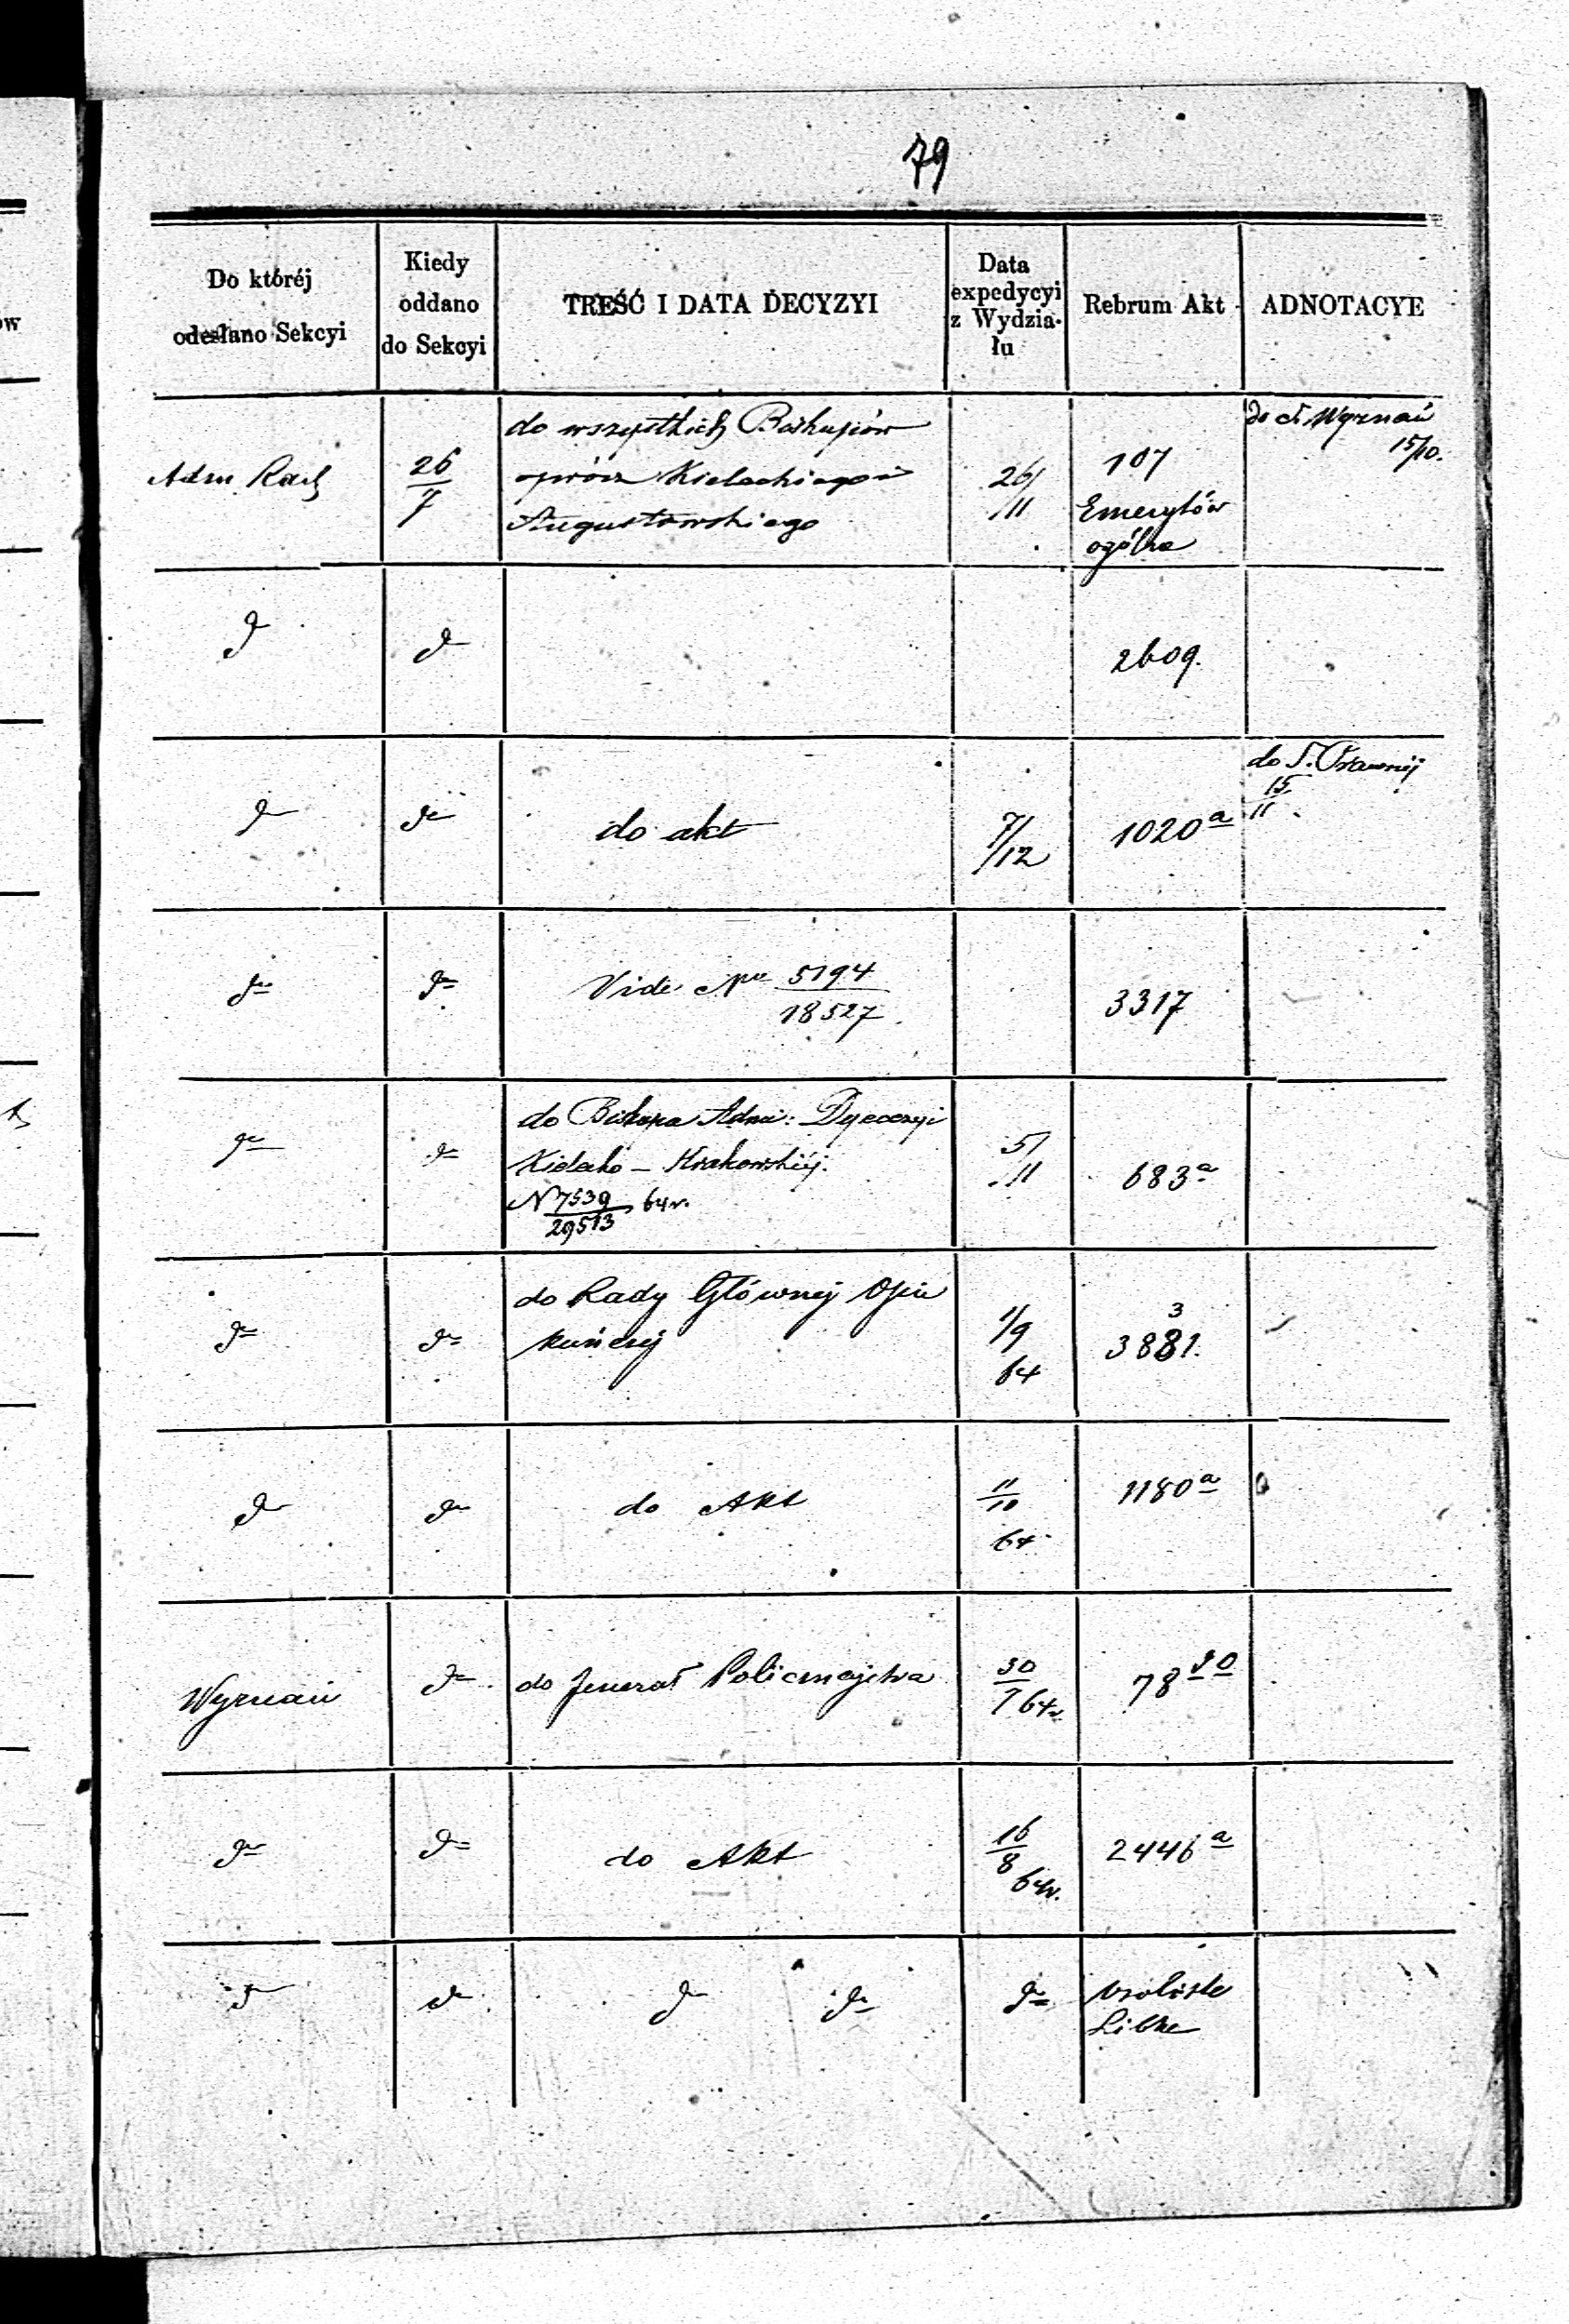 79
Do któréj
odesłano Sekcyi
Kiedy
oddano
do Sekcyi
TREŚĆ I DATA DECYZYI
Data
expedycyi
z Wydzia-
łu
Rebrum Akt
ADNOTACYE
Adm Rach
26/7
do wszystkich Biskupów
oprócz Kieleckiego i
Augustowskiego
26/11
107
Emerytów
ogólne
do S. Wyznań
15/10.
d
d
2609.
do
do
do akt
7/12
1020 a
do S. Prawnéj
15/11
do
do
Vide Nr 5194/18527
3317
do
do
do Biskupa Adm: Dyecezyi
Kielecko - Krakowskiéj.
N 7539/29513 64 r.
5/11
683 a
do
do
do Rady Głównej Opie
kuńczej
1/9
64
3
3881.
do
do
do Akt
11/10
64
1180 a
Wyznań
do
do Jenerał Policmajstra
30/7 64 r.
78
do
do
do Akt
16/8 64 r.
2446 a
do
do
do
do
do